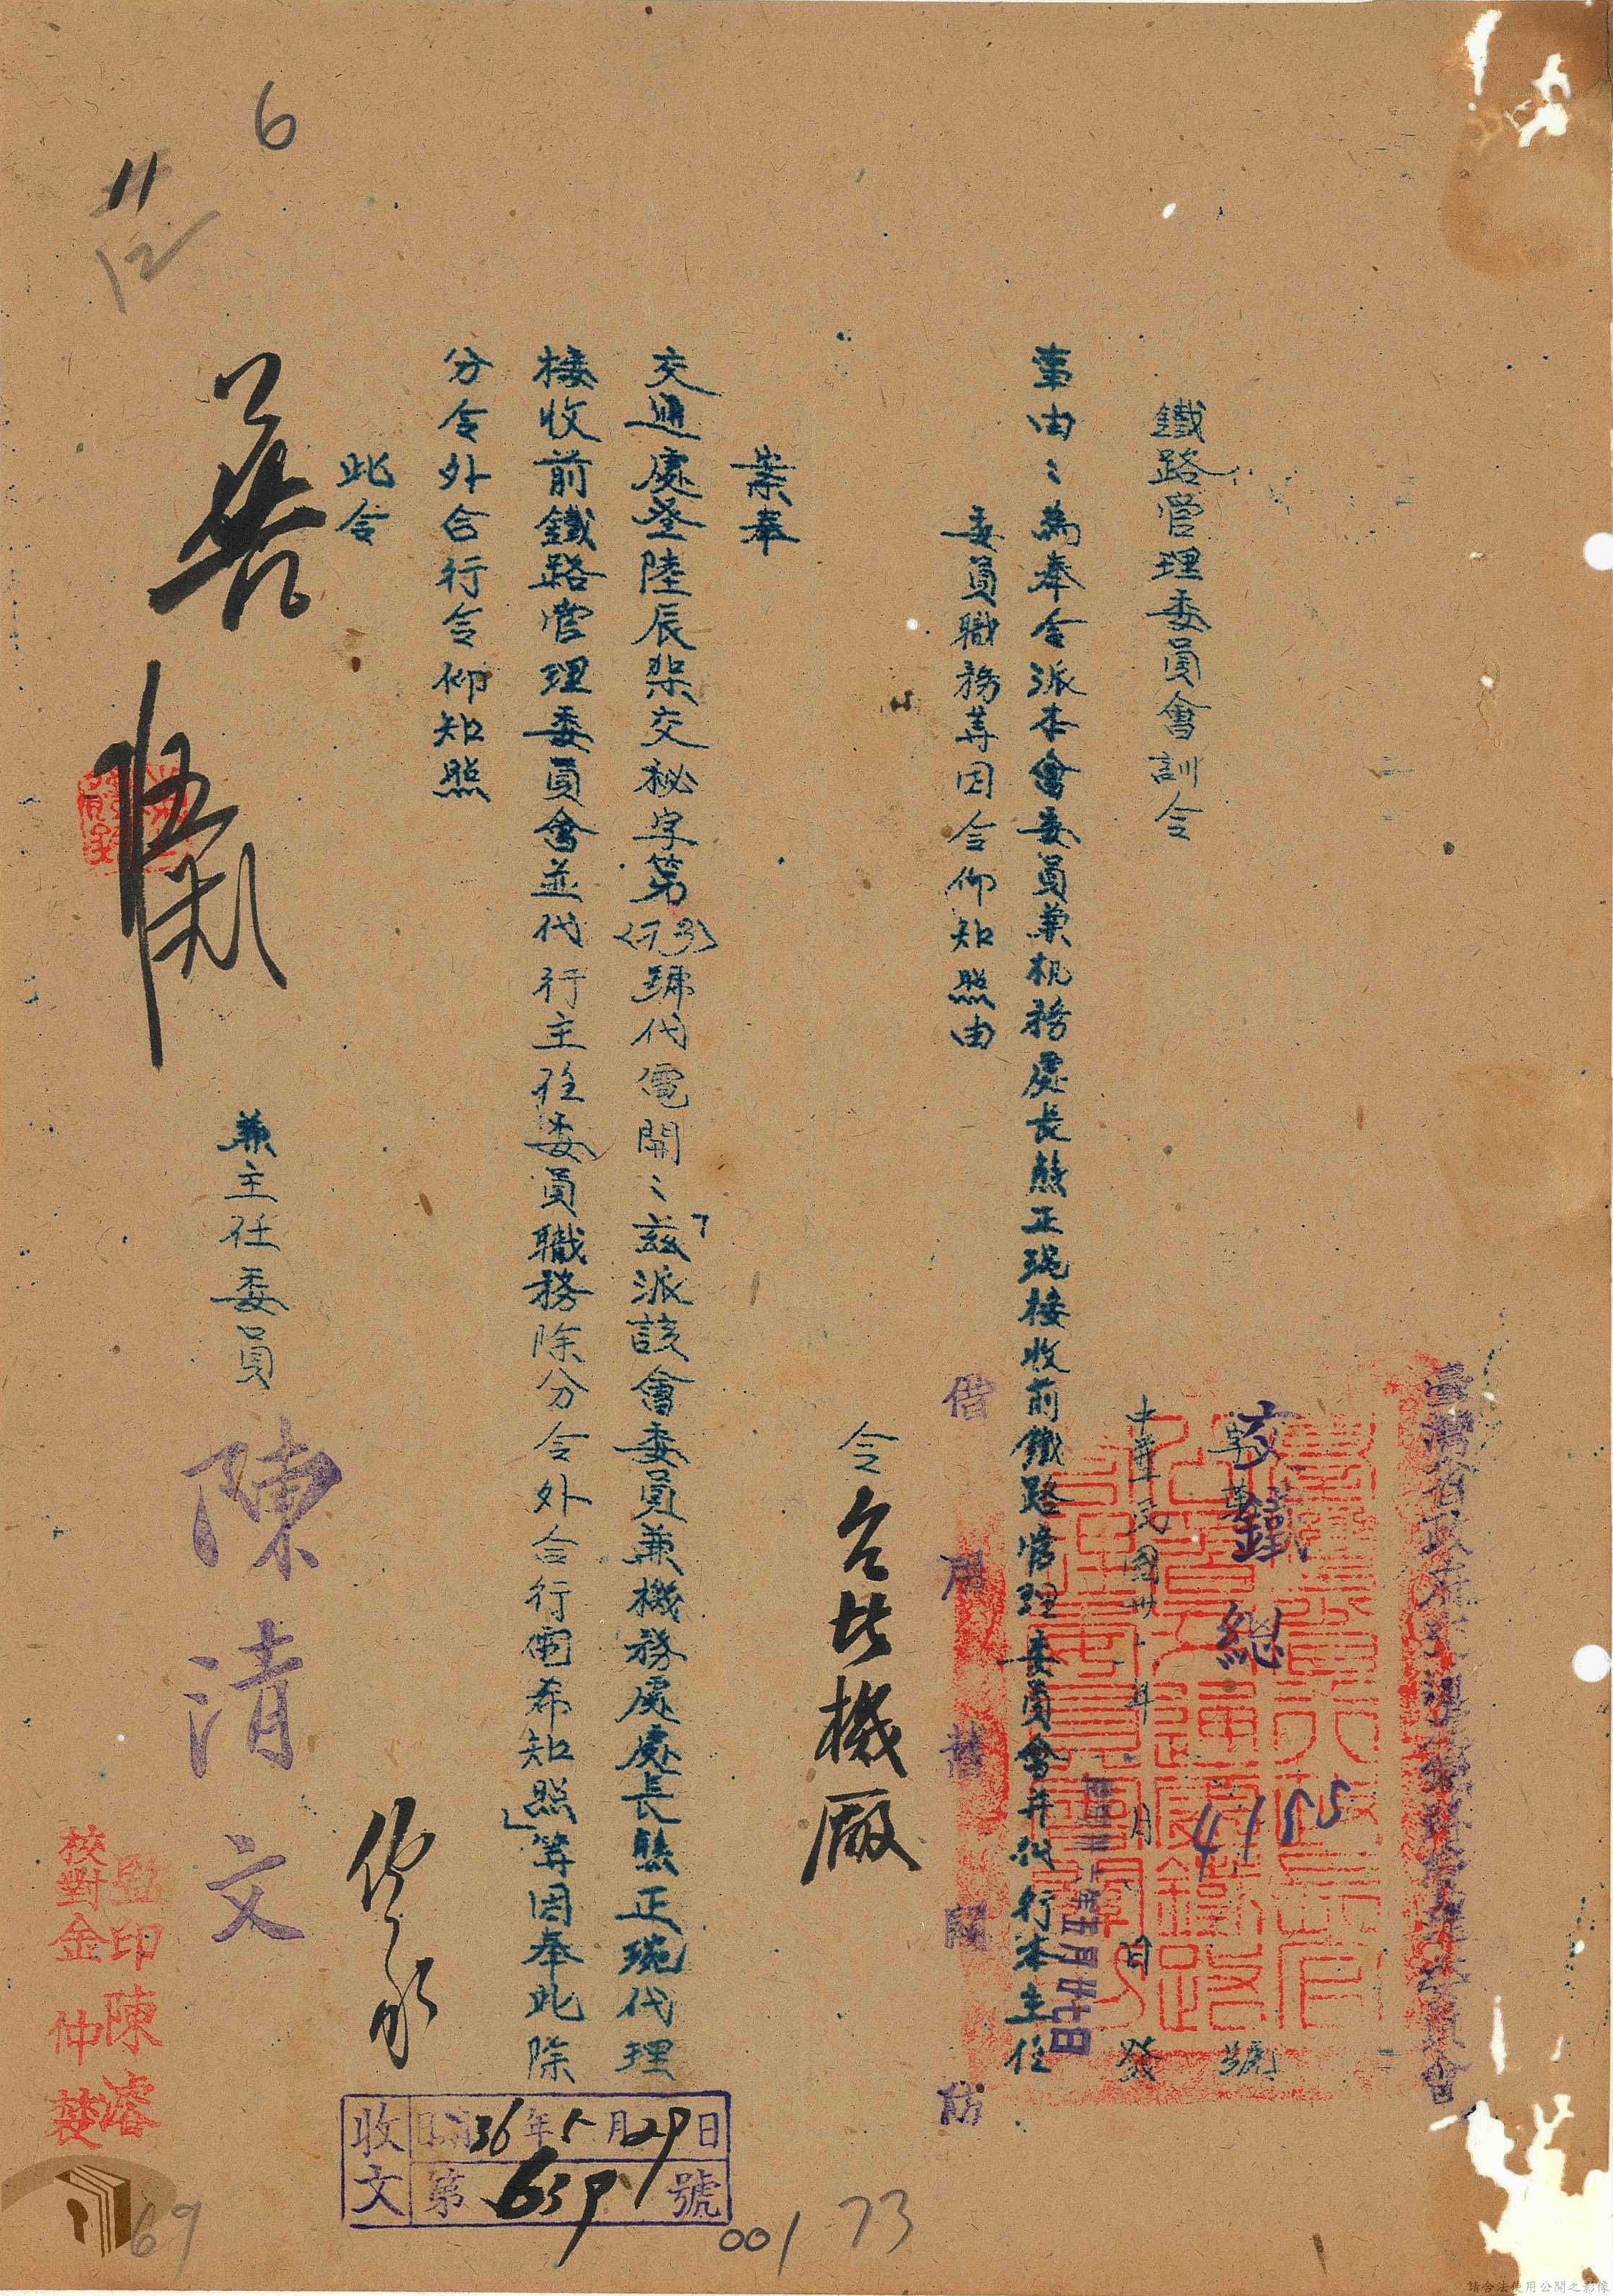 鐵路管理委員會訓令
交鐵總 4155 號
中華民國卅 年 月 日發
五月廿七日
事由：為奉令派本會委員兼机務處長熊正琬接收前鐵路管理委員會并代行本主任
委員職務等因令仰知照由
借用舊關防
令台北機厰
案奉
交通處叁陸辰梗交秘字第(173)號代電開：「茲派該會委員兼機務處處長熊正琬代理
接收前鐵路管理委員會並代行主任委員職務除分令外合行電希知照」等因奉此除
分令外合行令仰知照
此令
兼主任委員 陳清文
監印陳濬
校對金仲
收文 36年5月29日
第639號
6
11
12
69
001
73
請合法使用公開之影像